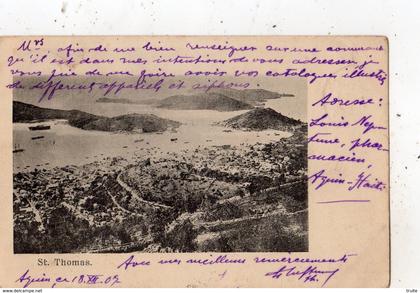 Mrs, afin de me bien renseigner sur une commande
qu'il est dans mes intentions de vous adresser, je
vous prie de me faire avoir vos catalogues illustrés
de différents appareils et siphons
Adresse:
Louis Neptune,
pharmacien,
Aquin-Haiti
St. Thomas.
Avec mes meilleurs remerciements
Aquin, ce 18. XII. 07